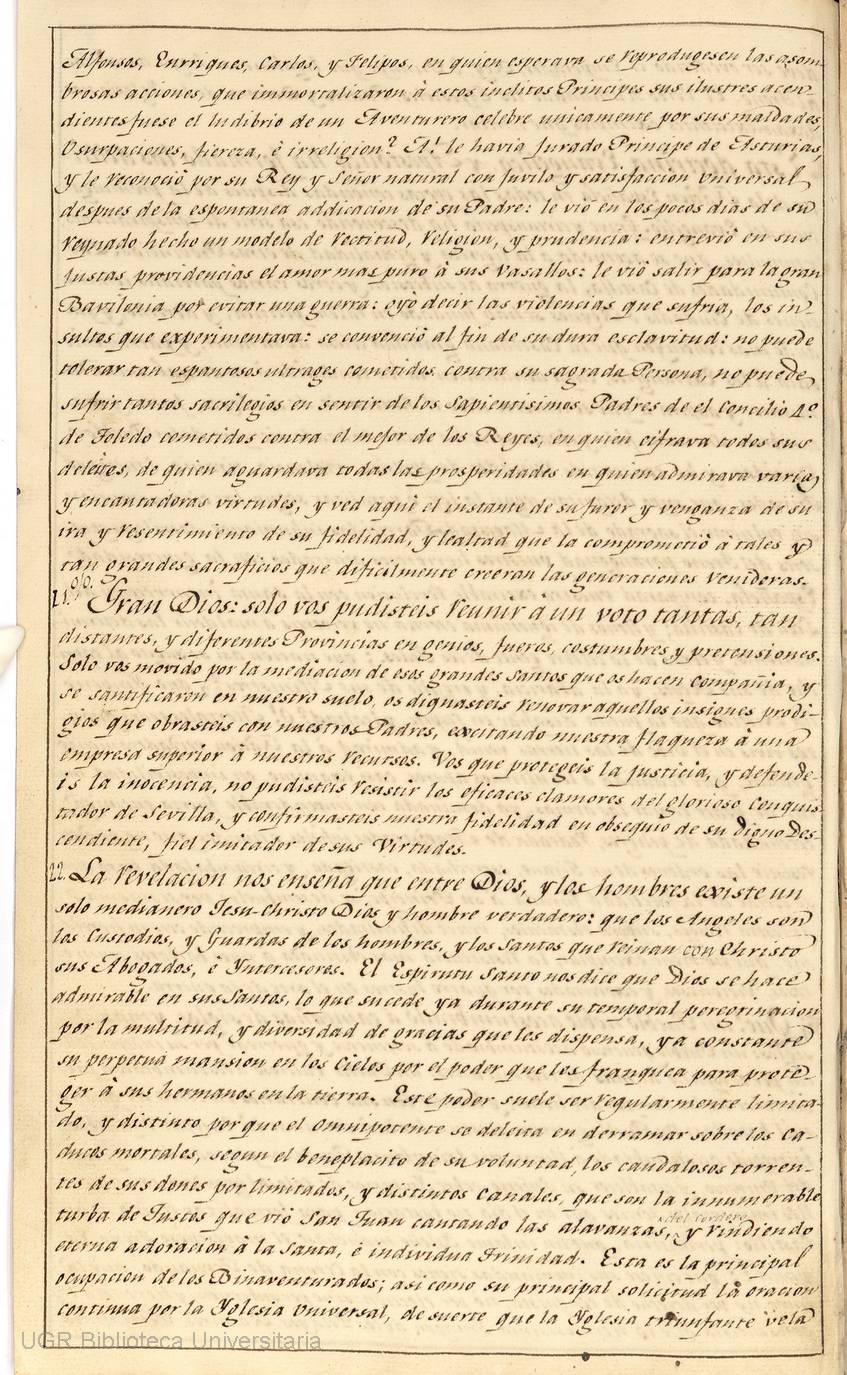 Alfonsos, Enrriques, Carlos, y Felipos, en quien esperava se reprodugesen las asom-
brosas acciones, que immortalizaron à estos inclitos Principes sus ilustres acen-
dientes fuese el ludibrio de un Aventurero celebre unicamente por sus maldades,
Usurpaciones, fiereza, è irreligion? A! le havia Jurado Principe de Asturias,
y le reconociò por su Rey y Señor natural con Juvilo y satisfaccion Vniversal
despues de la espontanea addicacion de su Padre: le viò en los pocos dias de su
reynado hecho un modelo de rectitud, religion, y prudencia: entreviò en sus
justas providencias el amor mas puro à sus Vasallos: le viò salir para la gran
Bavilonia por evitar una guerra: oyò decir las violencias que sufria, los in-
sultos que experimentava: se convenciò al fin de su dura esclavitud: no puede
tolerar tan espantosos ultrages cometidos contra su sagrada Persona, no puede
sufrir tantos sacrilegios en sentir de los Sapientisimos Padres de el Concilio 4º
de Toledo cometidos contra el mejor de los Reyes, en quien cifrava todos sus
deleites, de quien aguardava todas las prosperidades en quien admirava varias
y encantadoras virtudes, y ved aqui el instante de su furor y venganza de su
ira y resentimiento de su fidelidad, y lealtad que la comprometiò à tales y
tan grandes sacraficios que dificilmente creeran las generaciones venideras.
21. Gran Dios: solo vos pudisteis reunir à un voto tantas, tan
distantes, y diferentes Provincias en genios, fueros, costumbres y pretensiones.
Solo vos movido por la mediacion de esos grandes Santos que os hacen Compañia, y
se santificaron en nuestro suelo, os dignasteis renovar aquellos insignes prodi-
gios que obrasteis con nuestros Padres, excitando nuestra flaqueza à una
empresa superior à nuestros recursos. Vos que protegeis la justicia, y defende-
is la inocencia, no pudisteis resistir los eficaces clamores del glorioso Conquis-
tador de Sevilla, y confirmasteis nuestra fidelidad en obsequio de su Digno Des-
cendiente, fiel imitador de sus Virtudes.
22. La revelacion nos enseña que entre Dios, y los hombres existe un
solo medianero Jesu-Christo Dios y hombre verdadero: que los Angeles son
los Custodios, y Guardas de los hombres, y los Santos que reinan con Christo
sus Abogados, è Yntercesores. El Espirutu Santo nos dice que Dios se hace
admirable en sus Santos, lo que sucede ya durante su temporal peregrinacion
por la multitud, y diversidad de gracias que les dispensa, ya constante
su perpetua mansion en los Cielos por el poder que les franquea para prote-
ger à sus hermanos en la tierra. Este poder suele ser regularmente limita-
do, y distinto por que el Omnipotente se deleita en derramar sobre los Ca-
ducos mortales, segun el beneplacito de su voluntad, los caudalosos torren-
tes de sus dones por limitados, y distintos Canales, que son la innumerable
turba de Justos que viò San Juan cantando las alavanzas, del Cordero y rindiendo
eterna adoracion à la Santa, è individua Trinidad. Esta es la principal
ocupacion de los Binaventurados; asi como su principal solicitud la oracion
continua por la Yglesia Universal, de suerte que la Yglesia triunfante vela
UGR Biblioteca Universitaria